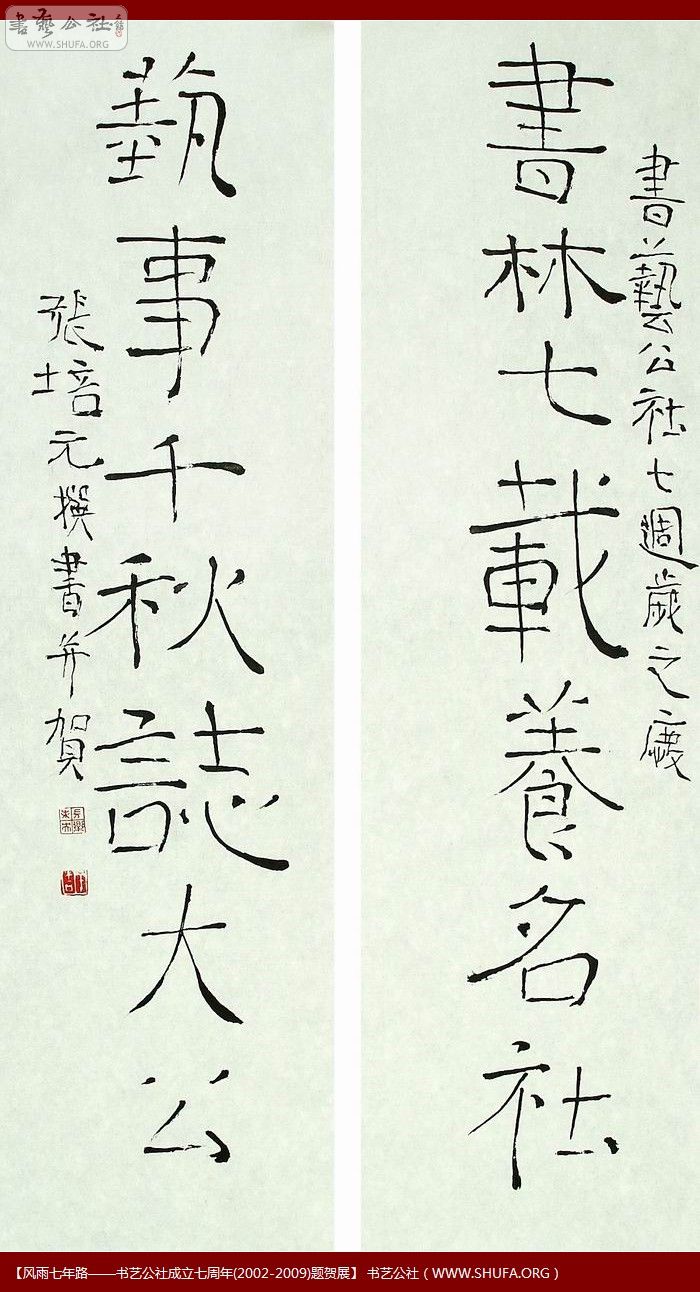 書藝公社
WWW.SHUFA.ORG
書藝公社七週歲之慶
書林七載養名社
埶事千秋誌大公
張培元撰書并賀
【风雨七年路——书艺公社成立七周年(2002-2009)题贺展】 书艺公社（WWW.SHUFA.ORG）